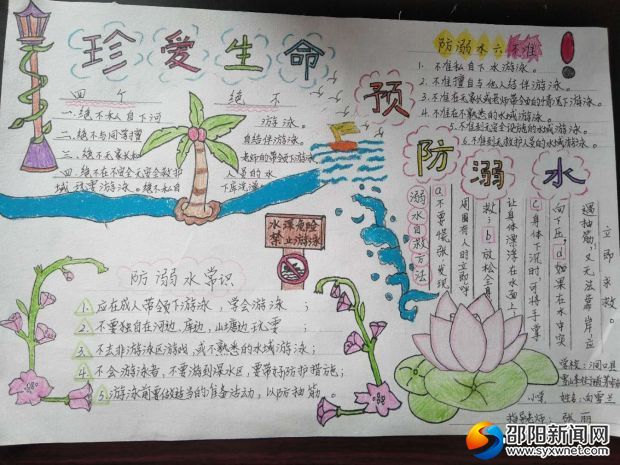 珍爱生命
预防溺水
四个绝不
一、绝不私自下河游泳。
二、绝不与同学擅自结伴游泳。
三、绝不无家长和老师的带领下游泳。
四、绝不在不安全无安全救护
防溺水六不准
1、不准私自下水游泳。
2、不准擅自与他人结伴游泳。
3、不准在无家长或老师带领的情况下游泳。
4、不准在不熟悉的水域游泳。
5、不准到无安全设施的水域游泳。
6、不准到无救护人员的水域游泳。
水深危险
禁止游泳
防溺水常识
1、应在成人带领下游泳，学会游泳；
2、不要独自在河边、库边、山塘边玩耍；
3、不去非游泳区游戏，或不熟悉的水域游泳；
4、不会游泳者，不要游到深水区，要带好防护措施；
5、游泳前要做适当的准备活动，以防抽筋。
溺水自救方法
a不要慌张，发现
周围有人时立即呼
救；b放松全
让身体漂浮在水面上
c身体下沉时，可将手掌
向下压；d如果在水中突
遇抽筋，又无法靠岸应
立即求救。
学校：洞口县
小学
姓名：向雪兰
指导老师：张丽
邵阳新闻网
www.syxwnet.com